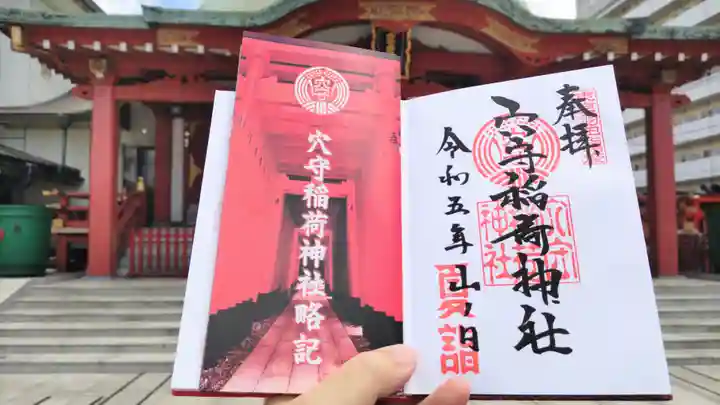 奉拝
穴守稲荷神社
令和五年
日
夏詣
穴守稲荷神社略記